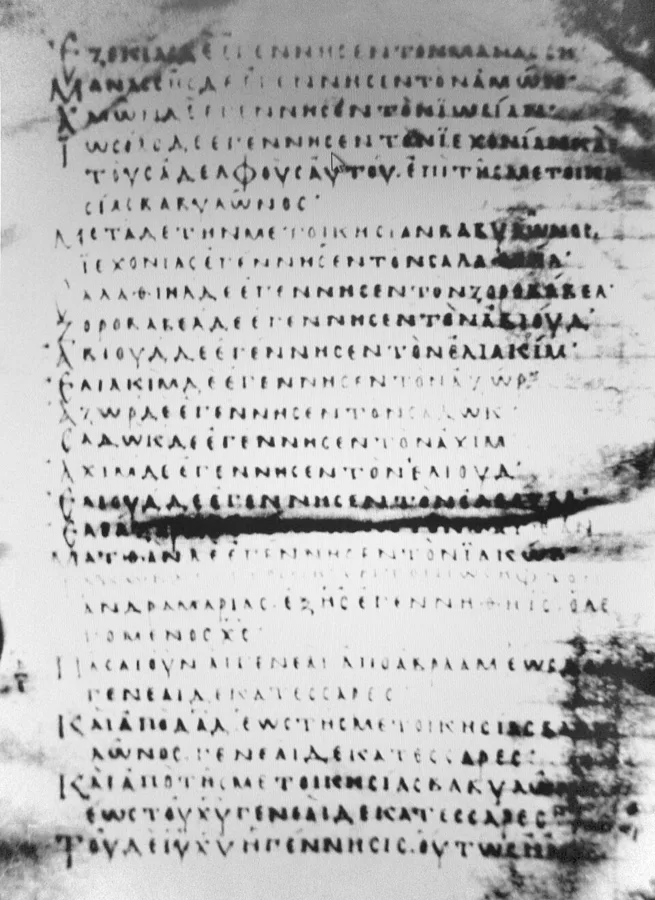 ΕΖΕΚΙΑϹΔΕΕΓΕΝΝΗϹΕΝΤΟΝΜΑΝΑϹϹΗ·
ΜΑΝΑϹϹΗϹΔΕΕΓΕΝΝΗϹΕΝΤΟΝΑΜΩΝ·
ΑΜΩΝΔΕΕΓΕΝΝΗϹΕΝΤΟΝΪΩϹΙΑΝ·
ΙΩϹΙΑϹΔΕΕΓΕΝΝΗϹΕΝΤΟΝΪΕΧΟΝΙΑΝΚΑΙ
ΤΟΥϹΑΔΕΛΦΟΥϹΑΥΤΟΥ·ΕΠΙΤΗϹΜΕΤΟΙΚΕ
ϹΙΑϹΒΑΒΥΛΩΝΟϹ·
ΜΕΤΑΔΕΤΗΝΜΕΤΟΙΚΗϹΙΑΝΒΑΒΥΛΩΝΟϹ·
ΪΕΧΟΝΙΑϹΕΓΕΝΝΗϹΕΝΤΟΝϹΑΛΑΘΙΗΛ·
ϹΑΛΑΘΙΗΛΔΕΕΓΕΝΝΗϹΕΝΤΟΝΖΟΡΟΒΑΒΕΛ·
ΖΟΡΟΒΑΒΕΛΔΕΕΓΕΝΝΗϹΕΝΤΟΝΑΒΙΟΥΔ·
ΑΒΙΟΥΔΔΕΕΓΕΝΝΗϹΕΝΤΟΝΕΛΙΑΚΙΜ·
ΕΛΙΑΚΙΜΔΕΕΓΕΝΝΗϹΕΝΤΟΝΑΖΩΡ·
ΑΖΩΡΔΕΕΓΕΝΝΗϹΕΝΤΟΝϹΑΔΩΚ·
ϹΑΔΩΚΔΕΕΓΕΝΝΗϹΕΝΤΟΝΑΧΙΜ
ΑΧΙΜΔΕΕΓΕΝΝΗϹΕΝΤΟΝΕΛΙΟΥΔ·
ΕΛΙΟΥΔΔΕΕΓΕΝΝΗϹΕΝΤΟΝΕΛΕΑΖΑΡ·
ΜΑΤΘΑΝΔΕΕΓΕΝΝΗϹΕΝΤΟΝΪΑΚΩΒ·
ΑΝΔΡΑΜΑΡΙΑϹ·ΕΞΗϹΕΓΕΝΝΗΘΗΙϹ·ΟΛΕ
ΓΟΜΕΝΟϹΧϹ·
ΠΑϹΑΙΟΥΝΑΙΓΕΝΕΑΙΑΠΟΑΒΡΑΑΜΕΩϹΔΑΔ
ΓΕΝΕΑΙΔΕΚΑΤΕϹϹΑΡΕϹ·
ΚΑΙΑΠΟΔΑΔ·ΕΩϹΤΗϹΜΕΤΟΙΚΗϹΙΑϹΒΑΒΥ
ΛΩΝΟϹ·ΓΕΝΕΑΙΔΕΚΑΤΕϹϹΑΡΕϹ·
ΚΑΙΑΠΟΤΗϹΜΕΤΟΙΚΗϹΙΑϹΒΑΒΥΛΩΝΟϹ
ΕΩϹΤΟΥΧΥΓΕΝΕΑΙΔΕΚΑΤΕϹϹΑΡΕϹ·
ΤΟΥΔΕΙΥΧΥΗΓΕΝΝΗϹΙϹ·ΟΥΤΩϹΗΝ·